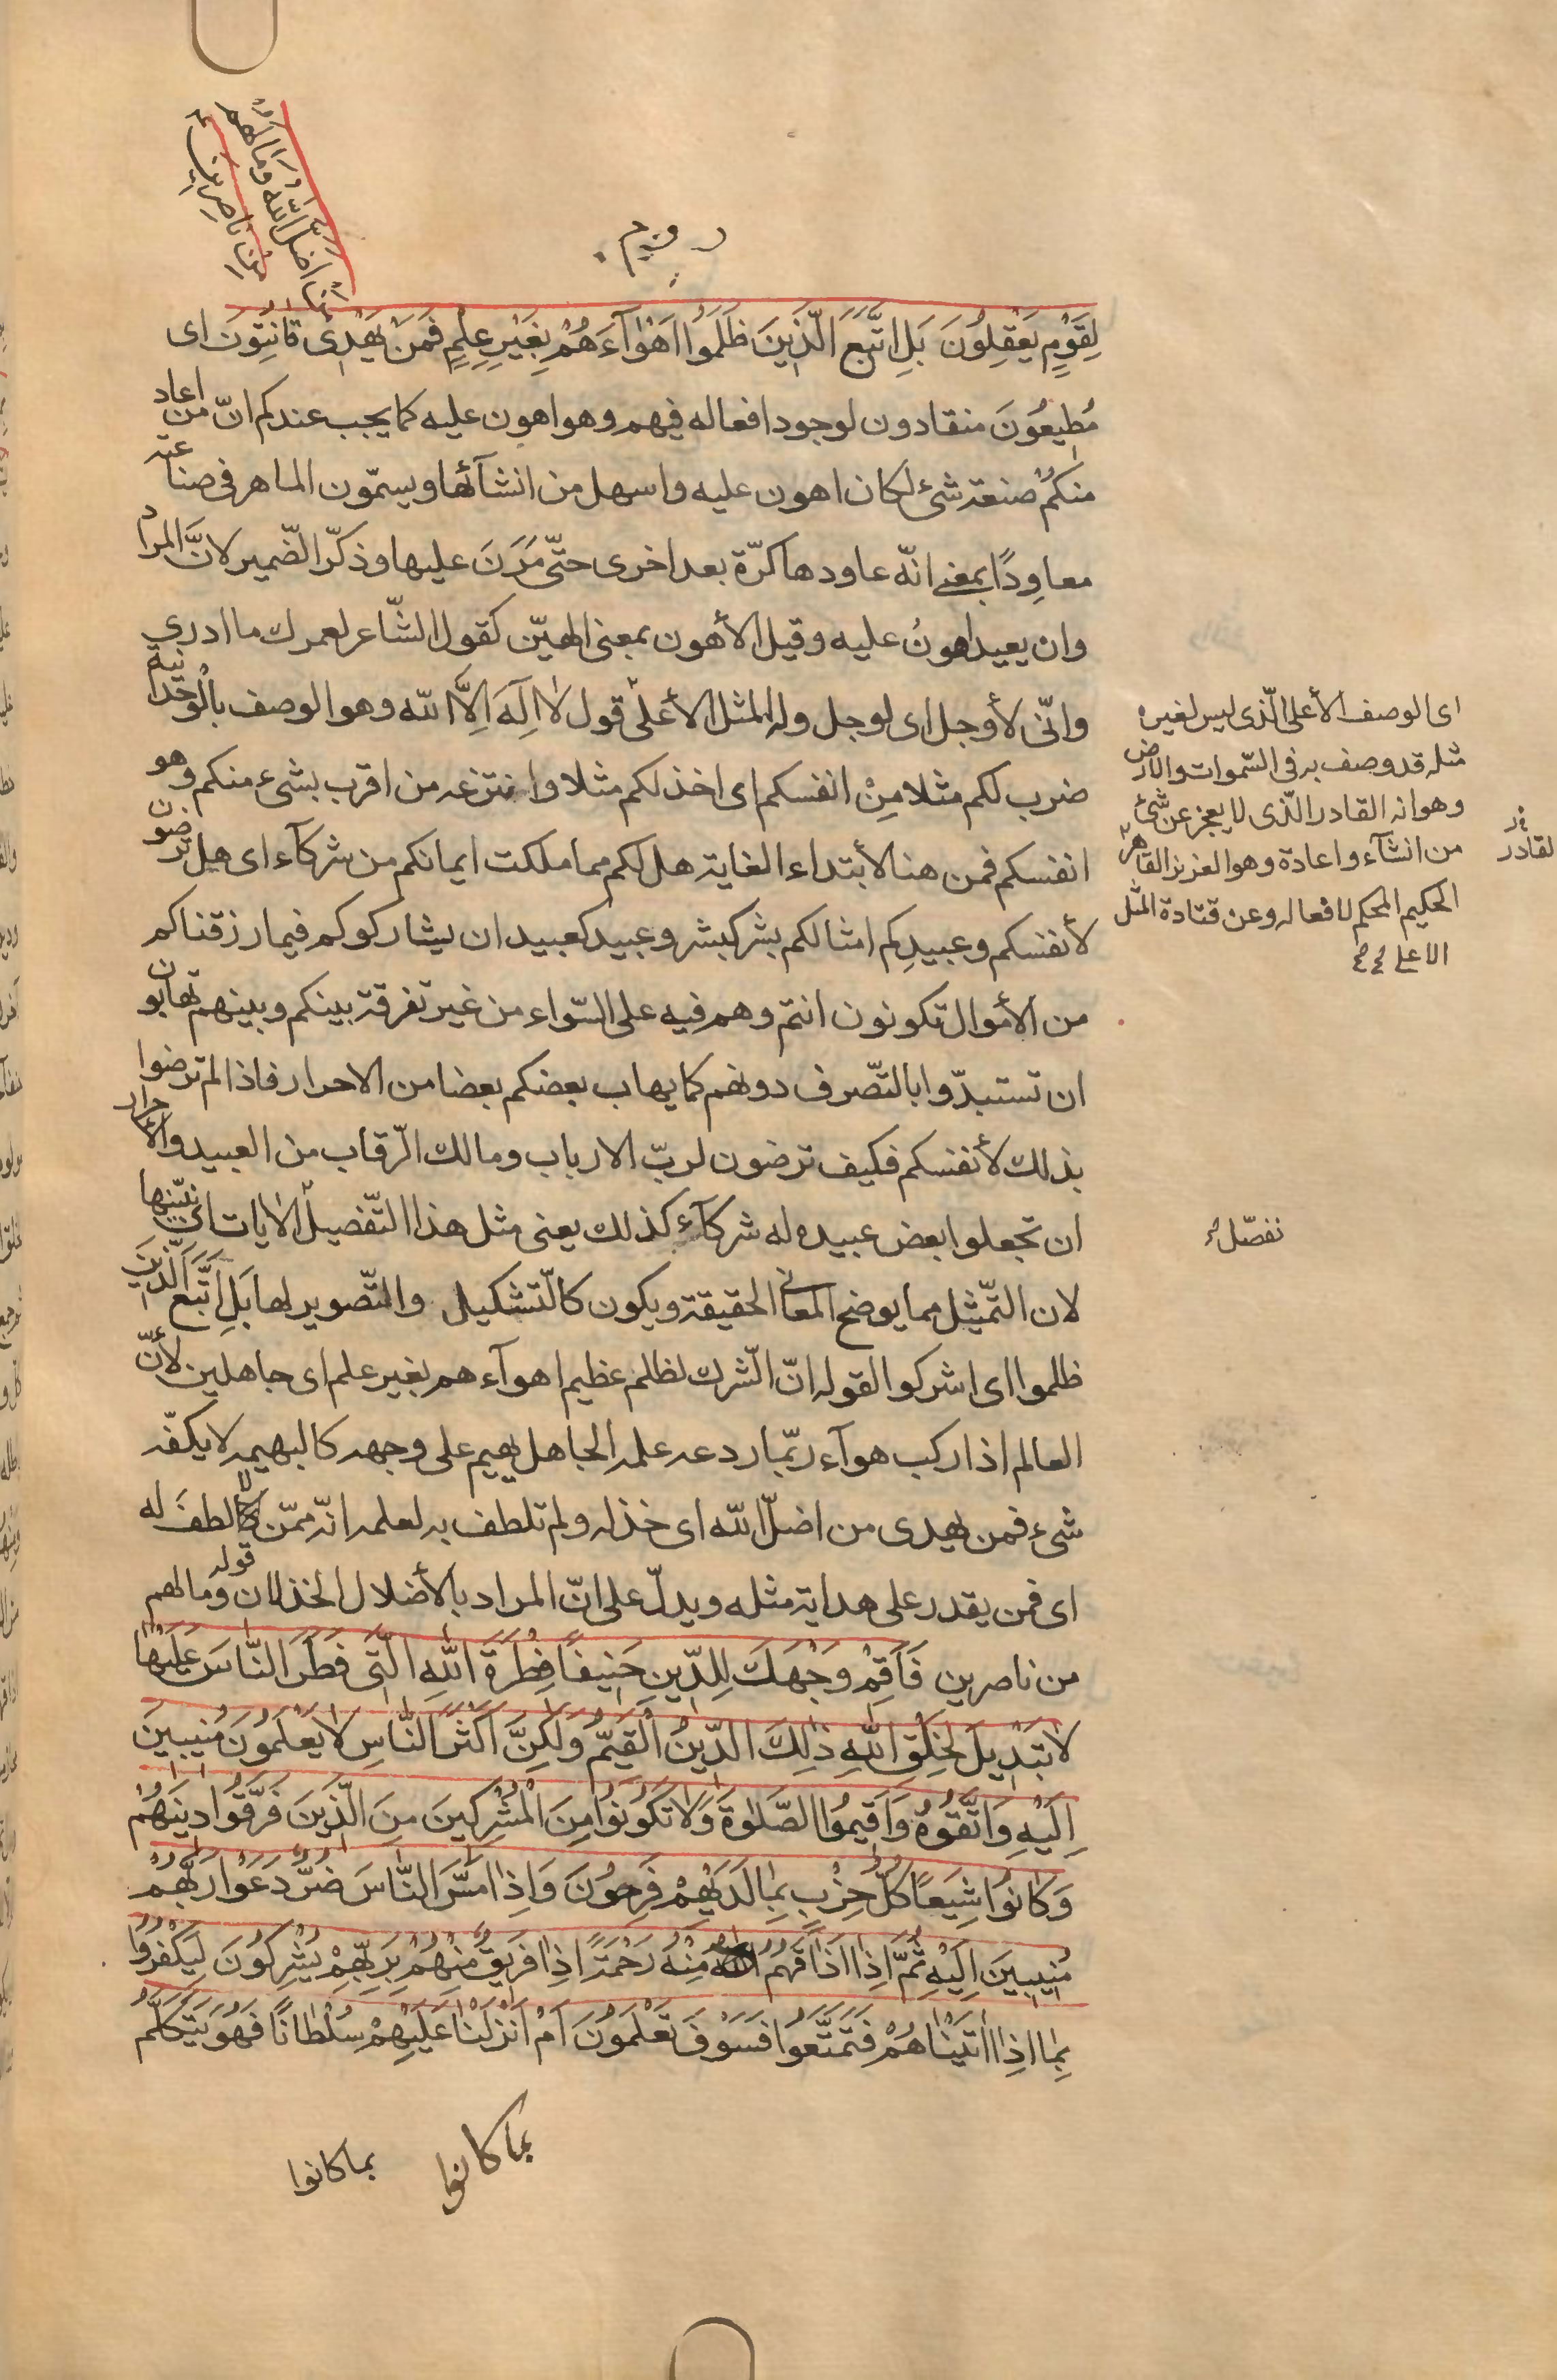 من اضلّ اللّه وما لهم
من ناصرين
لِقَوْمٍ يَعْقِلُونَ بَلِ اتَّبَعَ الَّذِينَ ظَلَمُوا اَهْوٰآءَهُمْ بِغَيْرِ عِلْمٍ فَمَنْ يَهْدِى قانِتُونَ اى
مُطيعُونَ منقادون لوجود افعاله فيهم وهو اهون عليه كما يجب عندكم انّ من اعاد
منكم صنعة شئ لكان اهون عليه واسهل من انشآئها ويسمّون الماهر فى صناعته
معاوِدًا بمعنى انّه عاودها كرّة بعد اخرى حتّى مَرَنَ عليها وذكّر الضّمير لانَّ المراد
وان يعيد اهونُ عليه وقيل الأهون بمعنى الهيّن كقول الشّاعر لعمرك ما ادري
وانّى لأوجل اى لوجل وله المثل الأعلى قول لا اِلٓهَ اِلَّا اللّه وهو الوصف بالوَحدانية
ضرب لكم مثلا مِنْ انفسكم اى اخذ لكم مثلا وانتزعه من اقرب بشئ منكم وهو
انفسكم فمن هنا لأبتداء الغاية هل لكم مما ملكت ايمانكم من شركآء اى هل ترضون
لأنفسكم وعبيدِكم امثالكم بشر كبشر وعبيد كعبيد ان يشاركوكم فيما رزقناكم
من الأموال تكونون انتم وهم فيه على السّواء من غير تفرقة بينكم وبينهم تهابون
ان تستبدّوا بالتّصرف دونهم كما يهاب بعضكم بعضا من الاحرار فاذا لم ترضوا
بذلك لأنفسكم فكيف ترضون لربّ الارباب ومالك الرّقاب من العبيد والأحرار
ان تجعلوا بعض عبيده له شركآء كذلك يعنى مثل هذا التّفصيل الايات اى نبيّنها
لان التّمثيل مما يوضح المعانى الحقيقة ويكون كالتّشكيل والتّصوير لها بَلِ اتَّبَعَ الَّذينَ
ظلموا اى اشركوا لقوله انّ الشّرك لظلم عظيم اهوآءهم بغير علم اى جاهلين لأنّ
العالم اذا ركب هوآء ربّما ردعه علمه الجاهل يهيم على وجهه كالبهيمه لا يكفّه
شئ فمن يهدى من اضلّ اللّه اى خذله ولم تلطف به لعلمه انّه ممّن لا لطف له
اى فمن يقدر على هداية مثله ويدلّ على انّ المراد بالأضلال الخذلان قوله وما لهم
من ناصرين فَاَقِمْ وَجْهَكَ لِلدّينِ حَنيفًا فِطْرَةَ اللّٰهِ الَّتى فَطَرَ النّاسَ عَلَيْهٰا
لا تَبْديلَ لِخَلْقِ اللّٰهِ ذٰلِكَ الدّينُ الْقَيِّمُ وَلٰكِنَّ اَكْثَرَ النّاسِ لا يَعْلَمُونَ مُنيبينَ
اِلَيْهِ وَاتَّقُوهُ وَاَقيمُوا الصَّلٰوةَ وَلا تَكُونُوا مِنَ الْمُشْرِكينَ مِنَ الَّذينَ فَرَّقُوا دينَهُمْ
وَكانُوا شِيَعًا كُلُّ حِزْبٍ بِمٰا لَدَيْهِمْ فَرِحُونَ وَاِذٰا مَسَّ النّاسَ ضُرٌّ دَعَوْا رَبَّهُمْ
مُنيبينَ اِلَيْهِ ثُمَّ اِذٰا اَذٰاقَهُمْ مِنْهُ رَحْمَةً اِذٰا فَريقٌ مِنْهُمْ بِرَبِّهِمْ يُشْرِكُونَ لِيَكْفُرُوا
بِمٰا اٰتَيْنٰاهُمْ فَتَمَتَّعُوا فَسَوْفَ تَعْلَمُونَ اَمْ اَنْزَلْنا عَلَيْهِمْ سُلْطانًا فَهُوَ يَتَكَلَّمُ
بما كانوا
بما كانوا
اى الوصف الأعلى الّذى ليس لغيره
مثله قد وصف به فى السّموات والارض
وهو انه القادر الّذى لا يعجز عن شئ
من انشآء واعادة وهو العزيز القاهر
الحكيم المحكم لافعاله وعن قتادة المثل
الاعلى
نفصّل